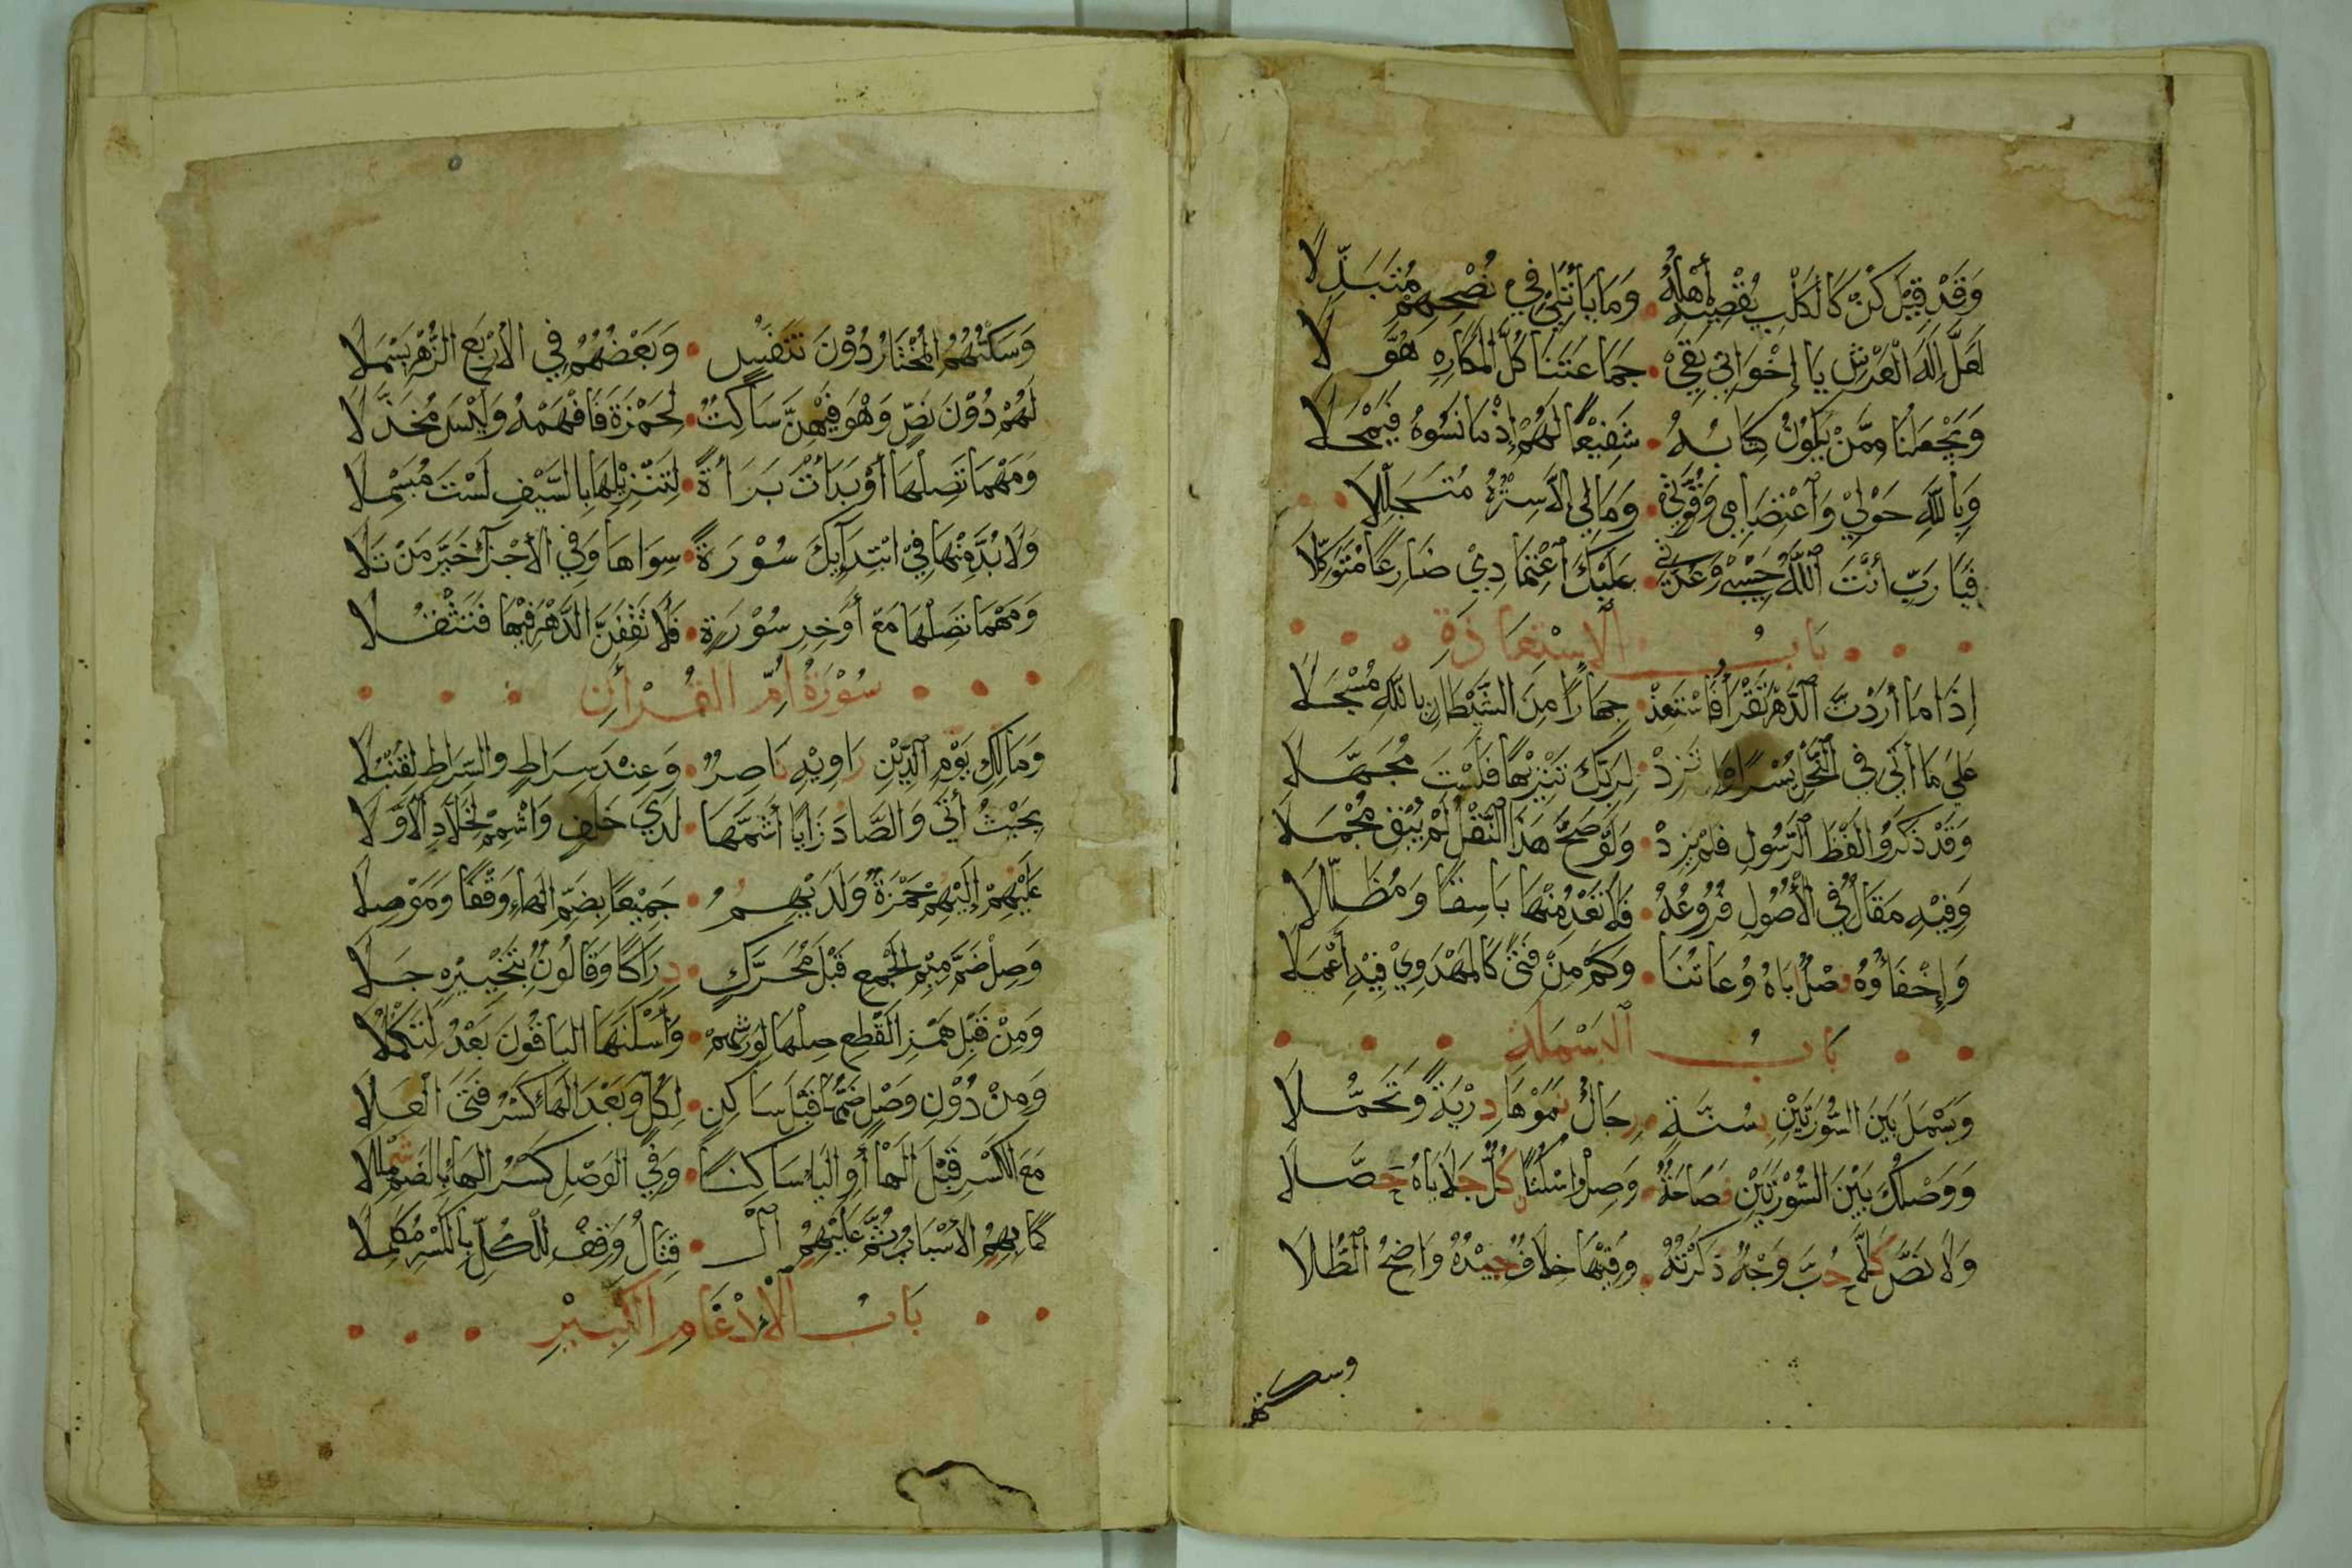 وَقَدْ قِيْلَ كُنْ كَالْكَلْبِ يُقْصِيْهِ أَهْلُهُ • وَمَا يَأْتَلِيْ فِيْ نُصْحِهِمْ مُتَبَذِّلَا
لَعَلَّ إِلَهَ الْعَرْشِ يَا إِخْوَاتِي يَقِيْ • جَمَاعَتَنَا كُلَّ الْمَكَارِهِ هُوَّلَا
وَيَجْعَلُنَا مِمَّنْ يَكُونُ كِتَابُهُ • شَفِيْعًا لَهُمْ إِذْ مَا نَسُوهُ فَيَمْحَلَا
وَبِاللهِ حَوْلِيْ وَاعْتِصَامِي وَقُوَّتِيْ • وَمَا لِي إِلَّا سِتْرُهُ مُتَجَلِّلَا
فَيَا رَبِّ أَنْتَ اللهُ حَسْبِيْ وَعُدَّتِيْ • عَلَيْكَ اعْتِمَادِيْ ضَارِعًا مُتَوَكِّلَا
بَابُ الْإِسْتِعَاذَةِ
إِذَا مَا أَرَدْتَ الدَّهْرَ تَقْرَأُ فَاسْتَعِذْ • جِهَارًا مِنَ الشَّيْطَانِ بِاللهِ مُسْجَلَا
عَلَى مَا أَتَى فِي النَّحْلِ يُسْرًا وَإِنْ تَزِدْ • لِرَبِّكَ تَنْزِيْهًا فَلَسْتَ مُجَهَّلَا
وَقَدْ ذَكَرُوا لَفْظَ الرَّسُولِ فَلَمْ يَزِدْ • وَلَوْ صَحَّ هَذَا النَّقْلُ لَمْ يُبْقِ مُجْمَلَا
وَفِيْهِ مَقَالٌ فِي الْأُصُولِ فُرُوعُهُ • فَلَا تَعْدُ مِنْهَا بَاسِقًا وَمُظَلِّلَا
وَإِخْفَاؤُهُ فَصْلٌ أَبَاهُ وُعَاتُنَا • وَكَمْ مِنْ فَتًى كَالْمَهْدَوِيْ فِيْهِ أَعْمَلَا
بَابُ الْبَسْمَلَةِ
وَبَسْمَلَ بَيْنَ السُّورَتَيْنِ بِسُنَّةٍ • رِجَالٌ نَمَوْهَا دِرْيَةً وَتَحَمُّلَا
وَوَصْلُكَ بَيْنَ السُّوْرَتَيْنِ فَصَاحَةٌ • وَصِلْ وَاسْكُتَنْ كُلٌّ جَلَايَاهُ حَصَّلَا
وَلَا نَصَّ كَلَّا حُبَّ وَجْهٌ ذَكَرْتُهُ • وَفِيْهَا خِلَافٌ جِيْدُهُ وَاضِحُ الطُّلَا
وسكتهم
وَسَكْتُهُمُ الْمُخْتَارُ دُوْنَ تَنَفُّسٍ • وَبَعْضُهُمُ فِي الْأَرْبَعِ الزُّهْرِ بَسْمَلَا
لَهُمْ دُوْنَ نَصٍّ وَهْوَ فِيْهِنَّ سَاكِتٌ • لِحَمْزَةَ فَافْهَمْهُ وَلَيْسَ مُخَذَّلَا
وَمَهْمَا تَصِلْهَا أَوْ بَدَأْتَ بَرَاءَةً • لِتَنْزِيْلِهَا بِالسَّيْفِ لَسْتَ مُبَسْمِلَا
وَلَا بُدَّ مِنْهَا فِيْ ابْتِدَائِكَ سُوْرَةً • سِوَاهَا وَفِي الْأَجْزَاءِ خَيَّرَ مَنْ تَلَا
وَمَهْمَا تَصِلْهَا مَعْ أَوَاخِرِ سُوْرَةٍ • فَلَا تَقِفَنَّ الدَّهْرَ فِيْهَا فَتَثْقُلَا
سُوْرَةُ أُمِّ الْقُرْاٰنِ
وَمَالِكِ يَوْمِ الدِّيْنِ رَاوِيْهِ نَاصِرٌ • وَعِنْدَ سِرَاطٍ وَالسِّرَاطِ لِقُنْبُلَا
بِحَيْثُ أَتَى وَالصَّادَ زَايًا أَشِمَّهَا • لَدَى خَلَفٍ وَاشْمِمْ لِخَلَّادِ الْأَوَّلَا
عَلَيْهِمْ إِلَيْهِمْ حَمْزَةٌ وَلَدَيْهِمُ • جَمِيْعًا بِضَمِّ الْهَاءِ وَقْفًا وَمَوْصِلَا
وَصِلْ ضَمَّ مِيْمِ الْجَمْعِ قَبْلَ مُحَرَّكٍ • دِرَاكًا وَقَالُونُ بِتَخْيِيْرِهِ جَلَا
وَمِنْ قَبْلِ هَمْزِ الْقَطْعِ صِلْهَا لِوَرْشِهِمْ • وَأَسْكَنَهَا الْبَاقُونَ بَعْدُ لِتَكْمُلَا
وَمِنْ دُوْنِ وَصْلٍ ضَمُّهَا قَبْلَ سَاكِنٍ • لِكُلٍّ وَبَعْدَ الْهَاءِ كَسْرُ فَتَى الْعَلَا
مَعَ الْكَسْرِ قَبْلَ الْهَا أَوِ الْيَاءِ سَاكِنًا • وَفِي الْوَصْلِ كَسْرُ الْهَاءِ بِالضَّمِّ شَمْلَلَا
كَمَا بِهِمُ الْأَسْبَابُ ثُمَّ عَلَيْهِمُ الْ • قِتَالُ وَقِفْ لِلْكُلِّ بِالْكَسْرِ مُكْمِلَا
بَابُ الْإِدْغَامِ الْكَبِيْرِ